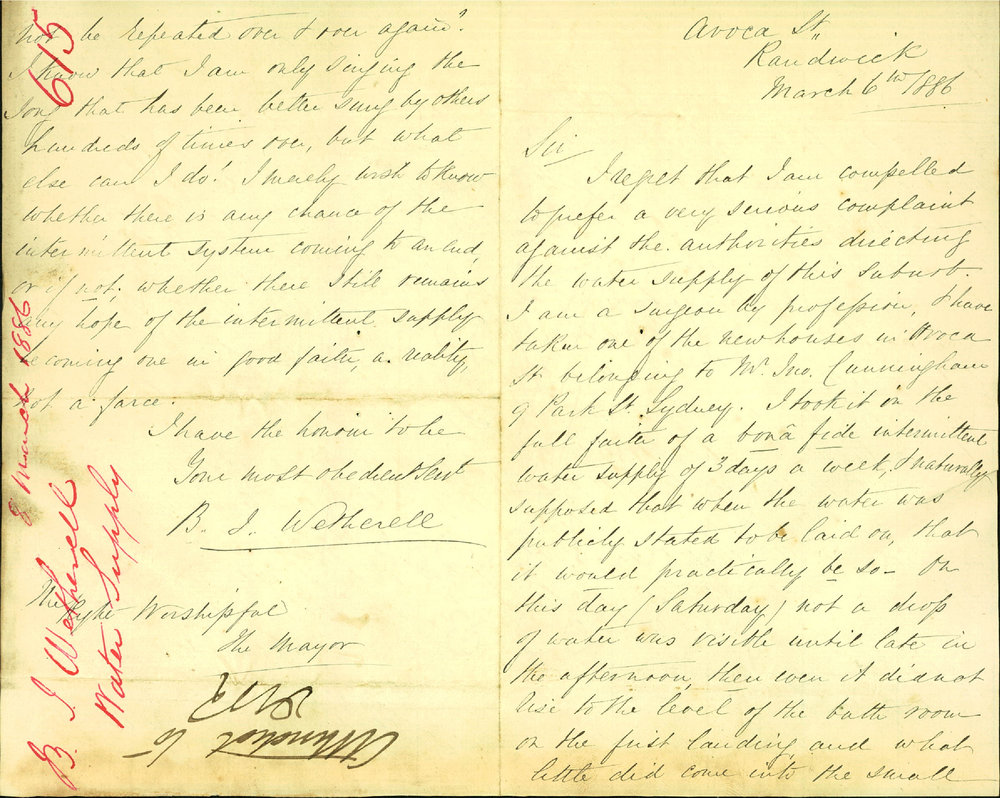 Avoca St.
Randwick
March 6th 1886
Sir
I regret that I am compelled
to prefer a very serious complaint
against the authorities directing
the water supply of this suburb.
I am a surgeon by profession, & have
taken one of the new houses in Avoca
St. belonging to Mr. Jno. Cunningham
of Park St. Sydney. I took it on the
full faith of a bonâ fide intermittent
water supply of 3 days a week, & naturally
supposed that when the water was
publicly stated to be laid on, that
it would practically be so – On
this day (Saturday) not a drop
of water was visible until late in
the afternoon, then even it did not
rise to the level of the bath room
on the first landing and what
little did come into the small
not be repeated over & over again?
I know that I am only singing the
song that has been better sung by others
hundreds of times over, but what
else can I do! I merely wish to know
whether there is any chance of the
intermittent system coming to an end,
or if not, whether there still remains
any hope of the intermittent supply
becoming one in good faith, a reality,
not a farce.
I have the honour to be
Your most obedient Servt
B. J. Wetherell
The Right Worshipful
The Mayor
615
8 March 1886
B. J. Wetherell
Water Supply